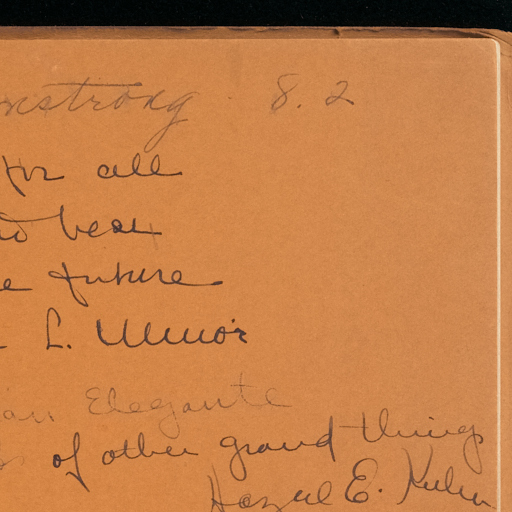 mstrong 8. 2
for all
best
future
L. Minor
Elegante
of other grand things
Hazel E. Kuhn